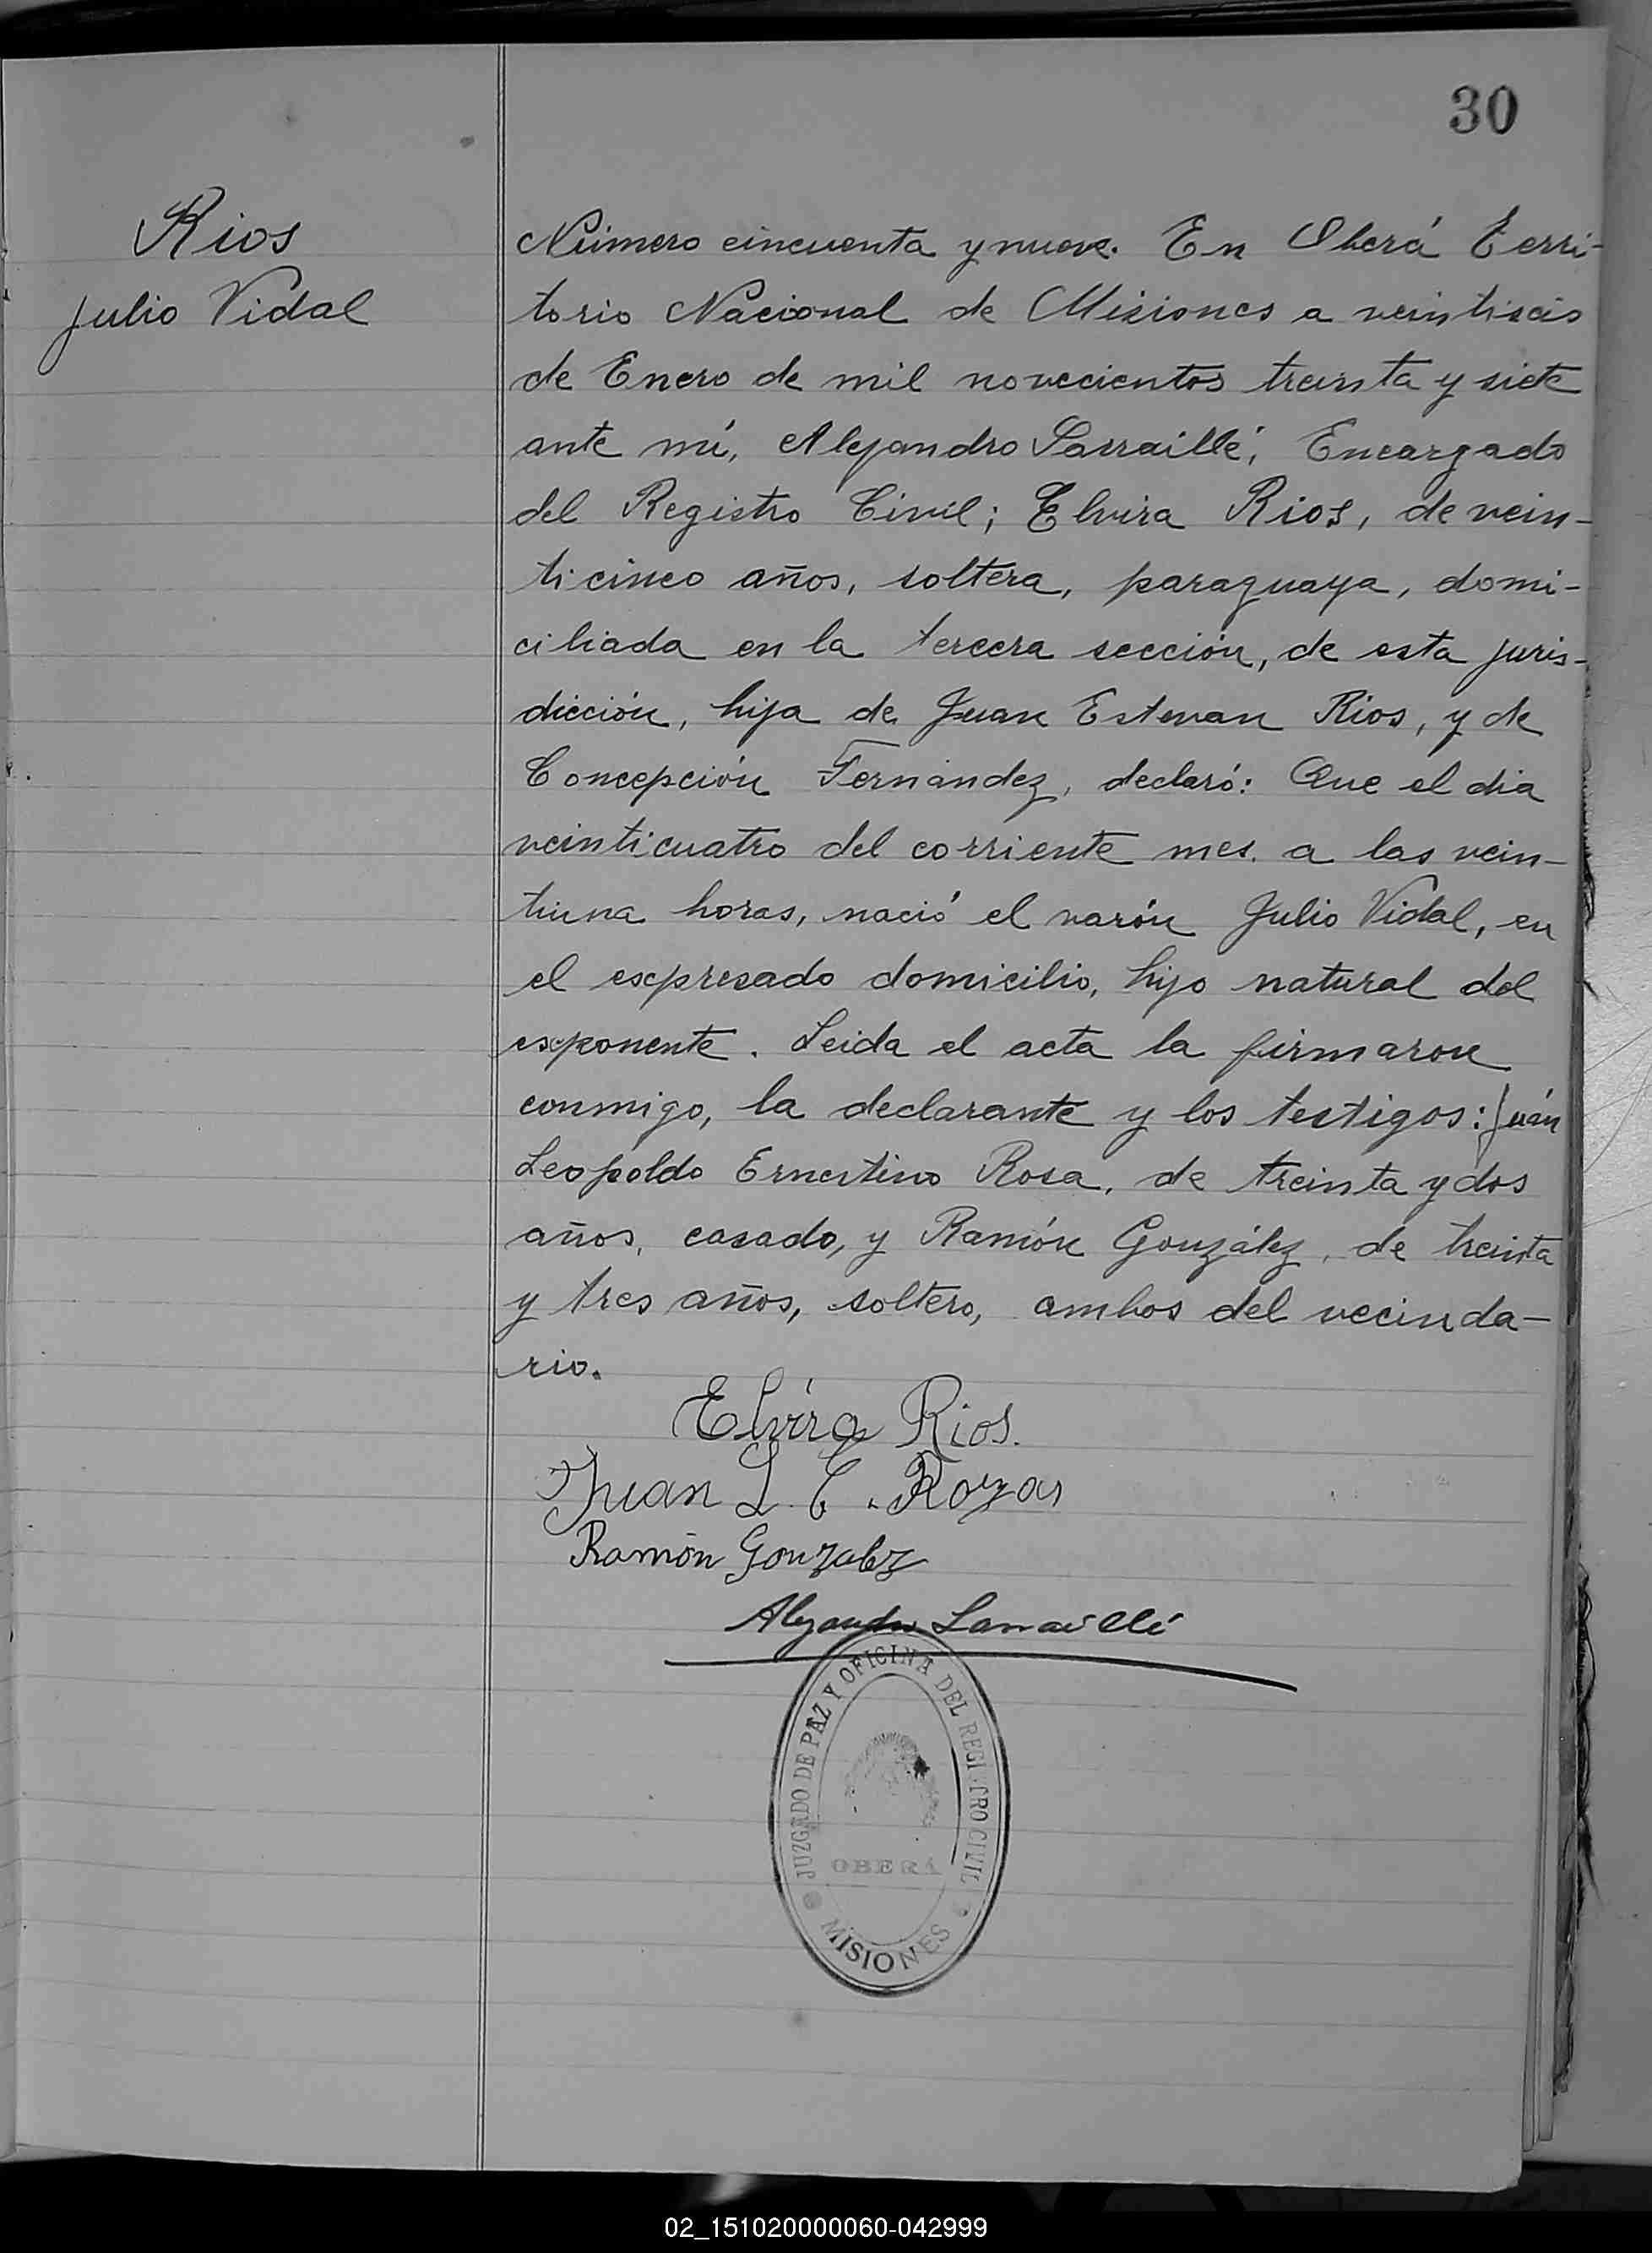 30
Rios
Julio Vidal
Número cincuenta y nueve. En Oberá Terri-
torio Nacional de Misiones a veintiseis
de Enero de mil novecientos treinta y siete
ante mí, Alejandro Larraillé, Encargado
del Registro Civil; Elvira Rios, de vein-
ticinco años, soltera, paraguaya, domi-
ciliada en la tercera sección, de esta juris-
dicción, hija de Juan Estevan Rios, y de
Concepción Fernández, declaró: Que el dia
veinticuatro del corriente mes. a las vein-
tiuna horas, nació el varón Julio Vidal, en
el expresado domicilio, hijo natural del
exponente. Leida el acta la firmaron
conmigo, la declarante y los testigos: Juán
Leopoldo Ernestino Rosa, de treinta y dos
años, casado, y Ramón González, de treinta
y tres años, soltero, ambos del vecinda-
rio.
Elvira Rios.
Juan L. E. Rozas
Ramón Gonzalez
Alejandro Larraillé
JUZGADO DE PAZ Y OFICINA DEL REGISTRO CIVIL
OBERÁ
MISIONES
02_151020000060-042999